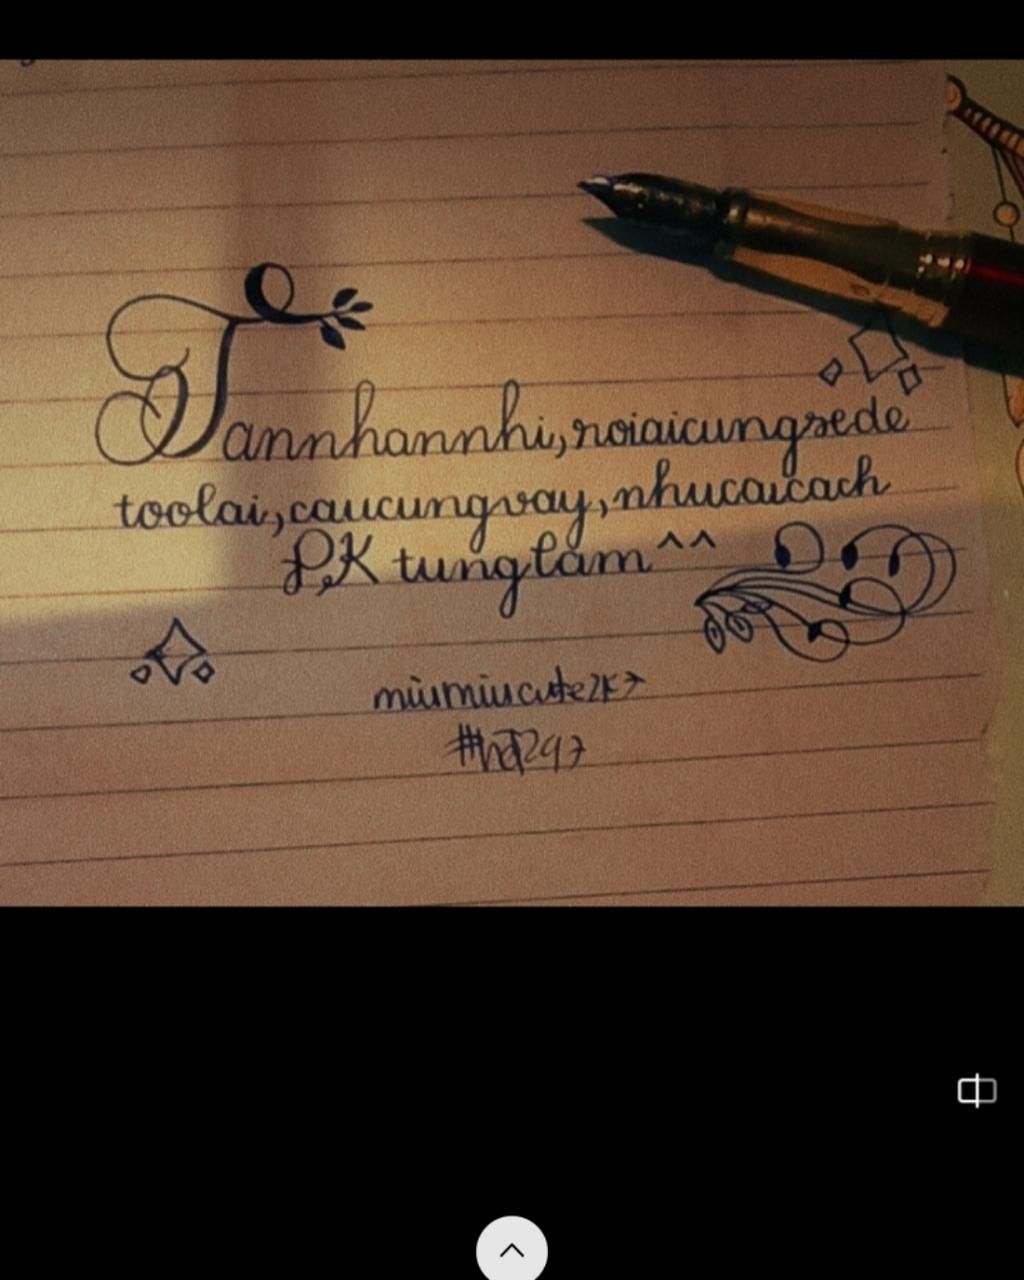 Tannhannhi,roiaicungsede
toolai,caucungvay,nhucaicach
P,K tunglam^^
miumiucute2k7